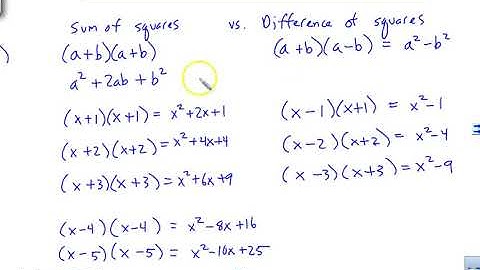 Sum of squares vs. Difference of squares
(a+b)(a+b)
(a+b)(a-b) = a²-b²
a² + 2ab + b²
(x+1)(x+1) = x²+2x+1
(x-1)(x+1) = x²-1
(x+2)(x+2) = x²+4x+4
(x-2)(x+2) = x²-4
(x+3)(x+3) = x²+6x+9
(x-3)(x+3) = x²-9
(x-4)(x-4) = x²-8x+16
(x-5)(x-5) = x²-10x+25